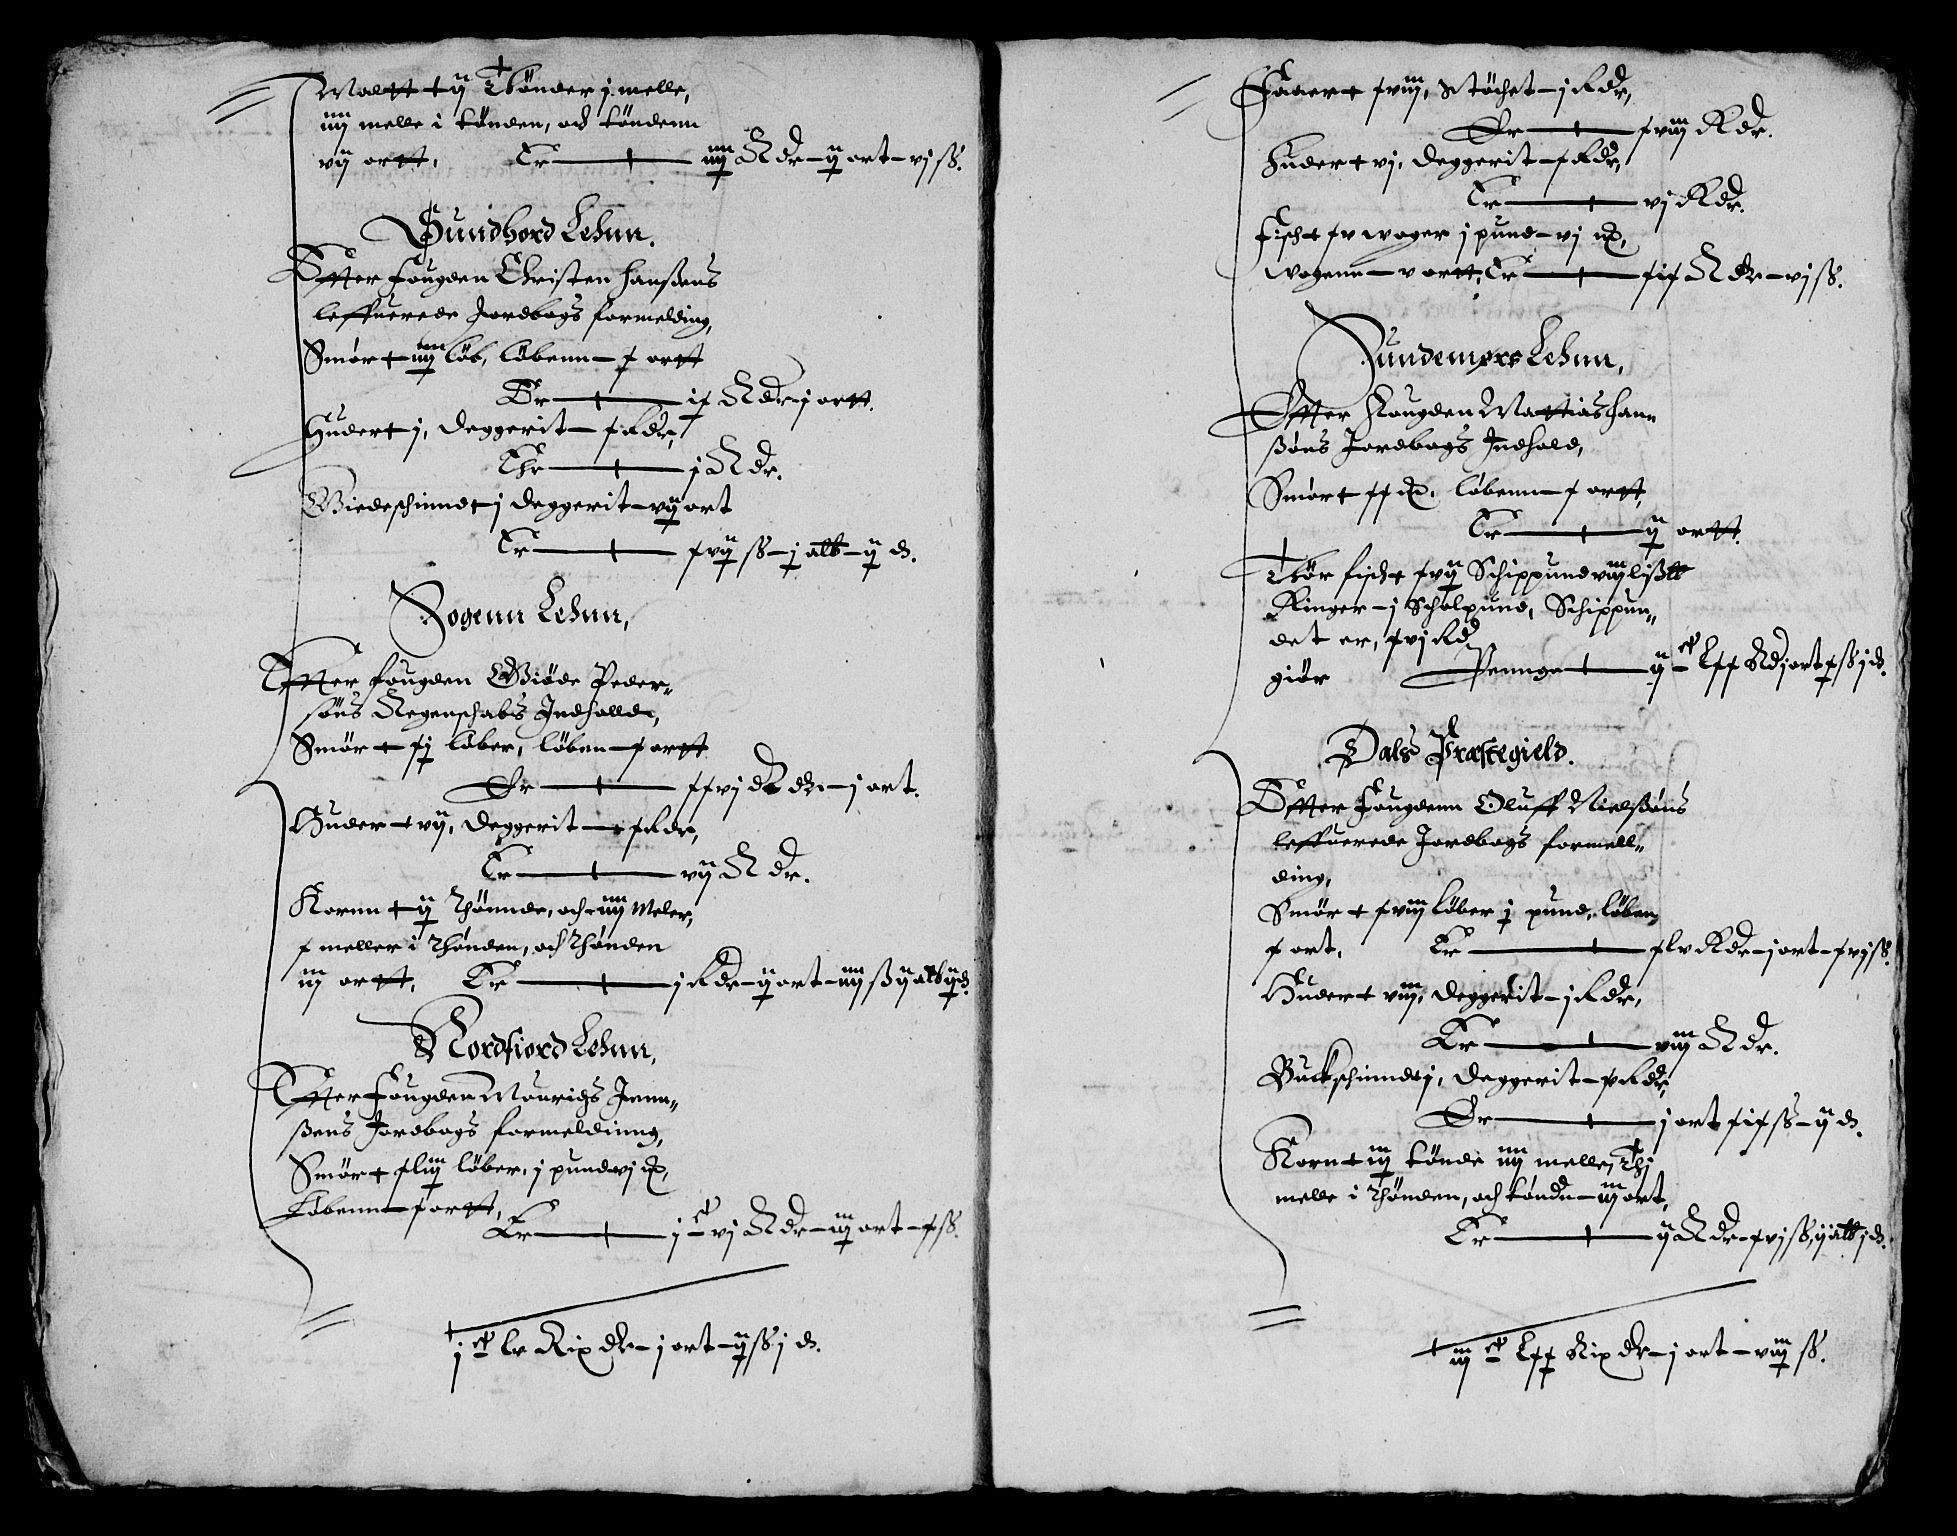 Maltt + ij Thønder j melle,
iiij melle i tønden, och tøndenn
vij ortt. Er — iiij Rdr – ij ort – vj ß.
Sundhord Lehnn.
Effter fougden Christen Hanßens
leffuerede Jordbogs formelding,
Smør + iiij løb, løbenn – x ortt
Er — ix Rdr – j ortt.
Huder + j, deggerit – x Rdr,
Er — j Rdr.
Giedeschinnd + j deggerit – vij ort
Er — xvij ß – j alb – ij d.
Sogenn Lehnn,
Effter fougden Giøde Peder-
søns Regenschabs Indhalld,
Smør + xj løber, løben – x ortt
Er — xxvj dr – j ort.
Huder + vij, deggerit – x Rdr,
Er — vij Rdr.
Kornn + ij Thønnde, och iiij Meler,
x meller i thønden, och thønden
iij ortt, Er — j Rdr – ij ort – iiij ß ij alb ij d.
Nordfiord Lehnn,
Effter Fougden Mouridß Jenn-
ßens Jordbogs formeldinng,
Smør + xliij løber, j pund vj
Løbenn – x ortt,
Er — jc vj Rdr – iij ort – x ß.
jc lv Rix dr – j ort – ij ß j d.
Faaer + xviij, støchet – j Rdr,
Er — xviij Rdr.
Huder + vj, deggerit – x Rdr,
Er — vj Rdr.
Fisch + xv woger j pund – vj
wogenn – v ortt, Er — xix Rdr – vj ß.
Sundemørs Lehnn,
Effter Fougden Mattias Han-
ßøns Jordbogs Indhold,
Smør + xx løbenn – x ortt,
Er — ij ortt.
Thør fisch + xvij Schippund viij lißtt
Ringer – j Schalpund, Schippun-
det er, xvj Rd
giør Pennge — ijc lxx Rd j ort x ß j d.
Dals Præstegield.
Effter Fougdenn Oluff Nielßøns
leffuerede Jordbogs formell-
ding,
Smør + xviij løber j pund, løben
x ort, Er — xlv Rdr – j ort – xvj ß.
Huder + viij, deggerit – j Rdr,
Er — viij Rdr.
Buckschinnd + j, deggerit – Rdr,
Er — j ort xix ß – ij d.
Korn + iij tønde iiij melle, Thj
melle i thønden, och tønden – iij ort,
Er — ij Rdr – xvj ß, ij alb j d.
iijc lxx Rix dr – j ort – viij ß.